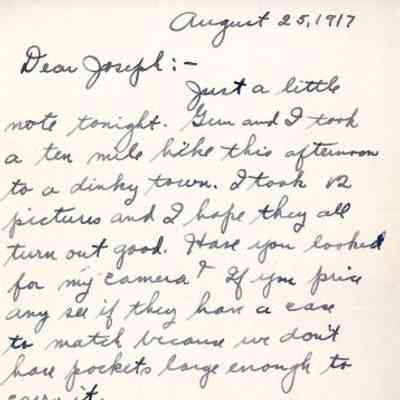 August 25, 1917
Dear Joseph:-
Just a little
note tonight. Gum and I took
a ten mile hike this afternoon
to a dinky town. I took 12
pictures and I hope they all
turn out good. Have you looked
for my camera? If you price
any see if they have a case
to match because we don't
have pockets large enough to
carry it.